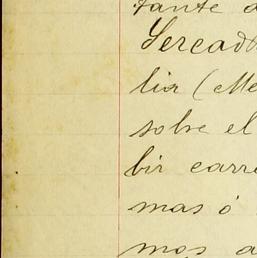 tante a
Sercado
lia (Me
sobre el
bir carre
mas ó
mos a